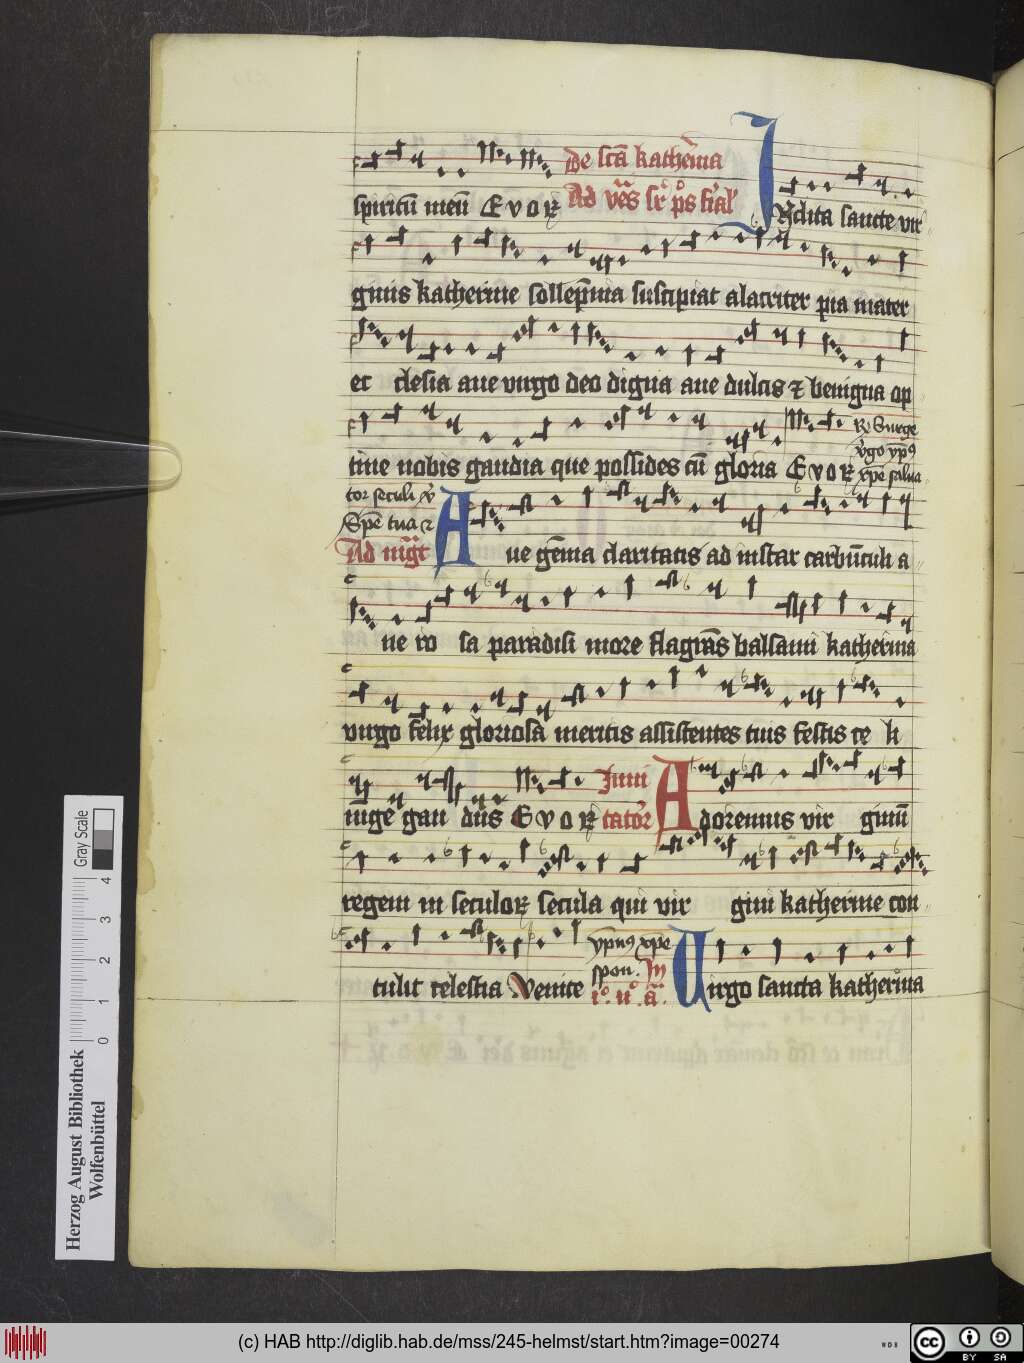 De sc̄a katherīa
spiritū meū E v o R Ad vēs sr̄ ps fr̄al' Nclita sancte vir
ginis katherine sollep̄nia suscipiat alacriter pia mater
ec clesia aue virgo deo digna aue dulcis ⁊ benigna op
tine nobis gaudia que possides cū gloria E v o R
R Surge
v̓go xp̄e salua
tor seculi
Spē tua
Ad mḡt A ue gēma claritatis ad instar carbūculi a
ue ro sa paradisi more flagrās balsami katherina
virgo fēlix gloriosa meritis assistentes tuis festis ce li
iūge gau diis E v o R Inui
tator̄ Adoremus vir ginū
regem in seculoꝝ secula qui vir gini katherine con
tulit celestia Venite
spon. In
i° n° ā. Uirgo sancta katherina
Herzog August Bibliothek
Wolfenbüttel
0 1 2 3 4
Gray Scale
(c) HAB http://diglib.hab.de/mss/245-helmst/start.htm?image=00274
WDB
cc BY SA